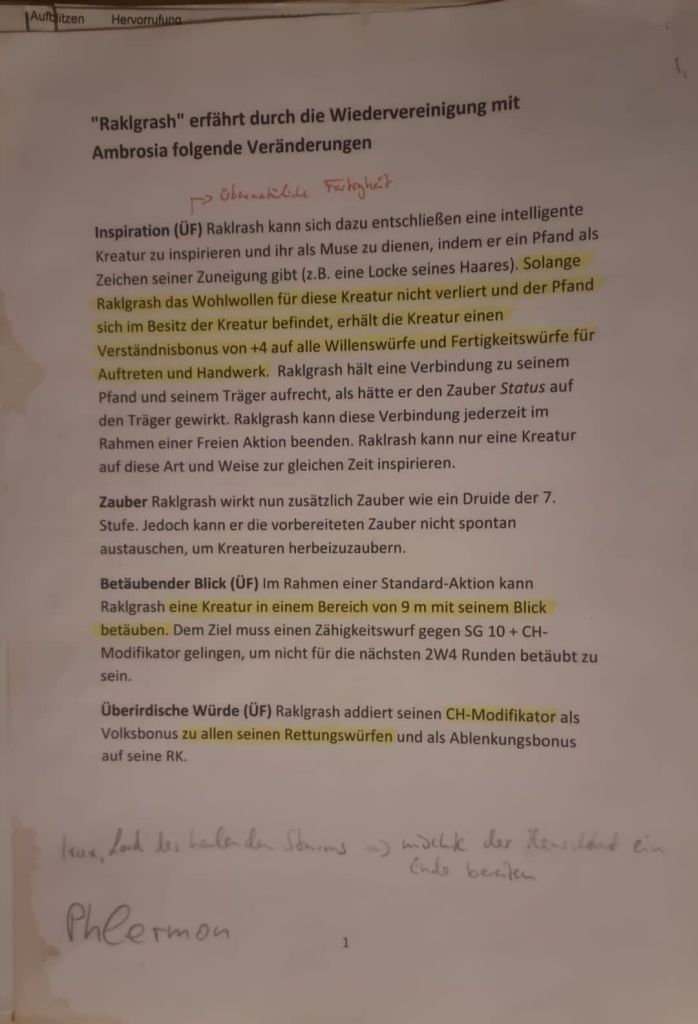 Aufblitzen Hervorrufung
"Raklgrash" erfährt durch die Wiedervereinigung mit
Ambrosia folgende Veränderungen
Übernatürliche Fertigkeit
Inspiration (ÜF) Raklrash kann sich dazu entschließen eine intelligente
Kreatur zu inspirieren und ihr als Muse zu dienen, indem er ein Pfand als
Zeichen seiner Zuneigung gibt (z.B. eine Locke seines Haares). Solange
Raklgrash das Wohlwollen für diese Kreatur nicht verliert und der Pfand
sich im Besitz der Kreatur befindet, erhält die Kreatur einen
Verständnisbonus von +4 auf alle Willenswürfe und Fertigkeitswürfe für
Auftreten und Handwerk. Raklgrash hält eine Verbindung zu seinem
Pfand und seinem Träger aufrecht, als hätte er den Zauber Status auf
den Träger gewirkt. Raklgrash kann diese Verbindung jederzeit im
Rahmen einer Freien Aktion beenden. Raklrash kann nur eine Kreatur
auf diese Art und Weise zur gleichen Zeit inspirieren.
Zauber Raklgrash wirkt nun zusätzlich Zauber wie ein Druide der 7.
Stufe. Jedoch kann er die vorbereiteten Zauber nicht spontan
austauschen, um Kreaturen herbeizuzaubern.
Betäubender Blick (ÜF) Im Rahmen einer Standard-Aktion kann
Raklgrash eine Kreatur in einem Bereich von 9 m mit seinem Blick
betäuben. Dem Ziel muss einen Zähigkeitswurf gegen SG 10 + CH-
Modifikator gelingen, um nicht für die nächsten 2W4 Runden betäubt zu
sein.
Überirdische Würde (ÜF) Raklgrash addiert seinen CH-Modifikator als
Volksbonus zu allen seinen Rettungswürfen und als Ablenkungsbonus
auf seine RK.
Lord des heulenden Sturms => möchte der Menschheit ein
Ende bereiten
Phlermon
1